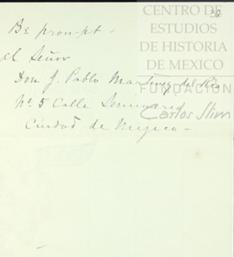 CENTRO DE
ESTUDIOS
DE HISTORIA
DE MEXICO
FUNDACIÓN
Carlos Slim
Be prompt -
el Señor
Don J. Pablo Martinez del Rio
No. 5 Calle Seminario
Ciudad de Mejico -